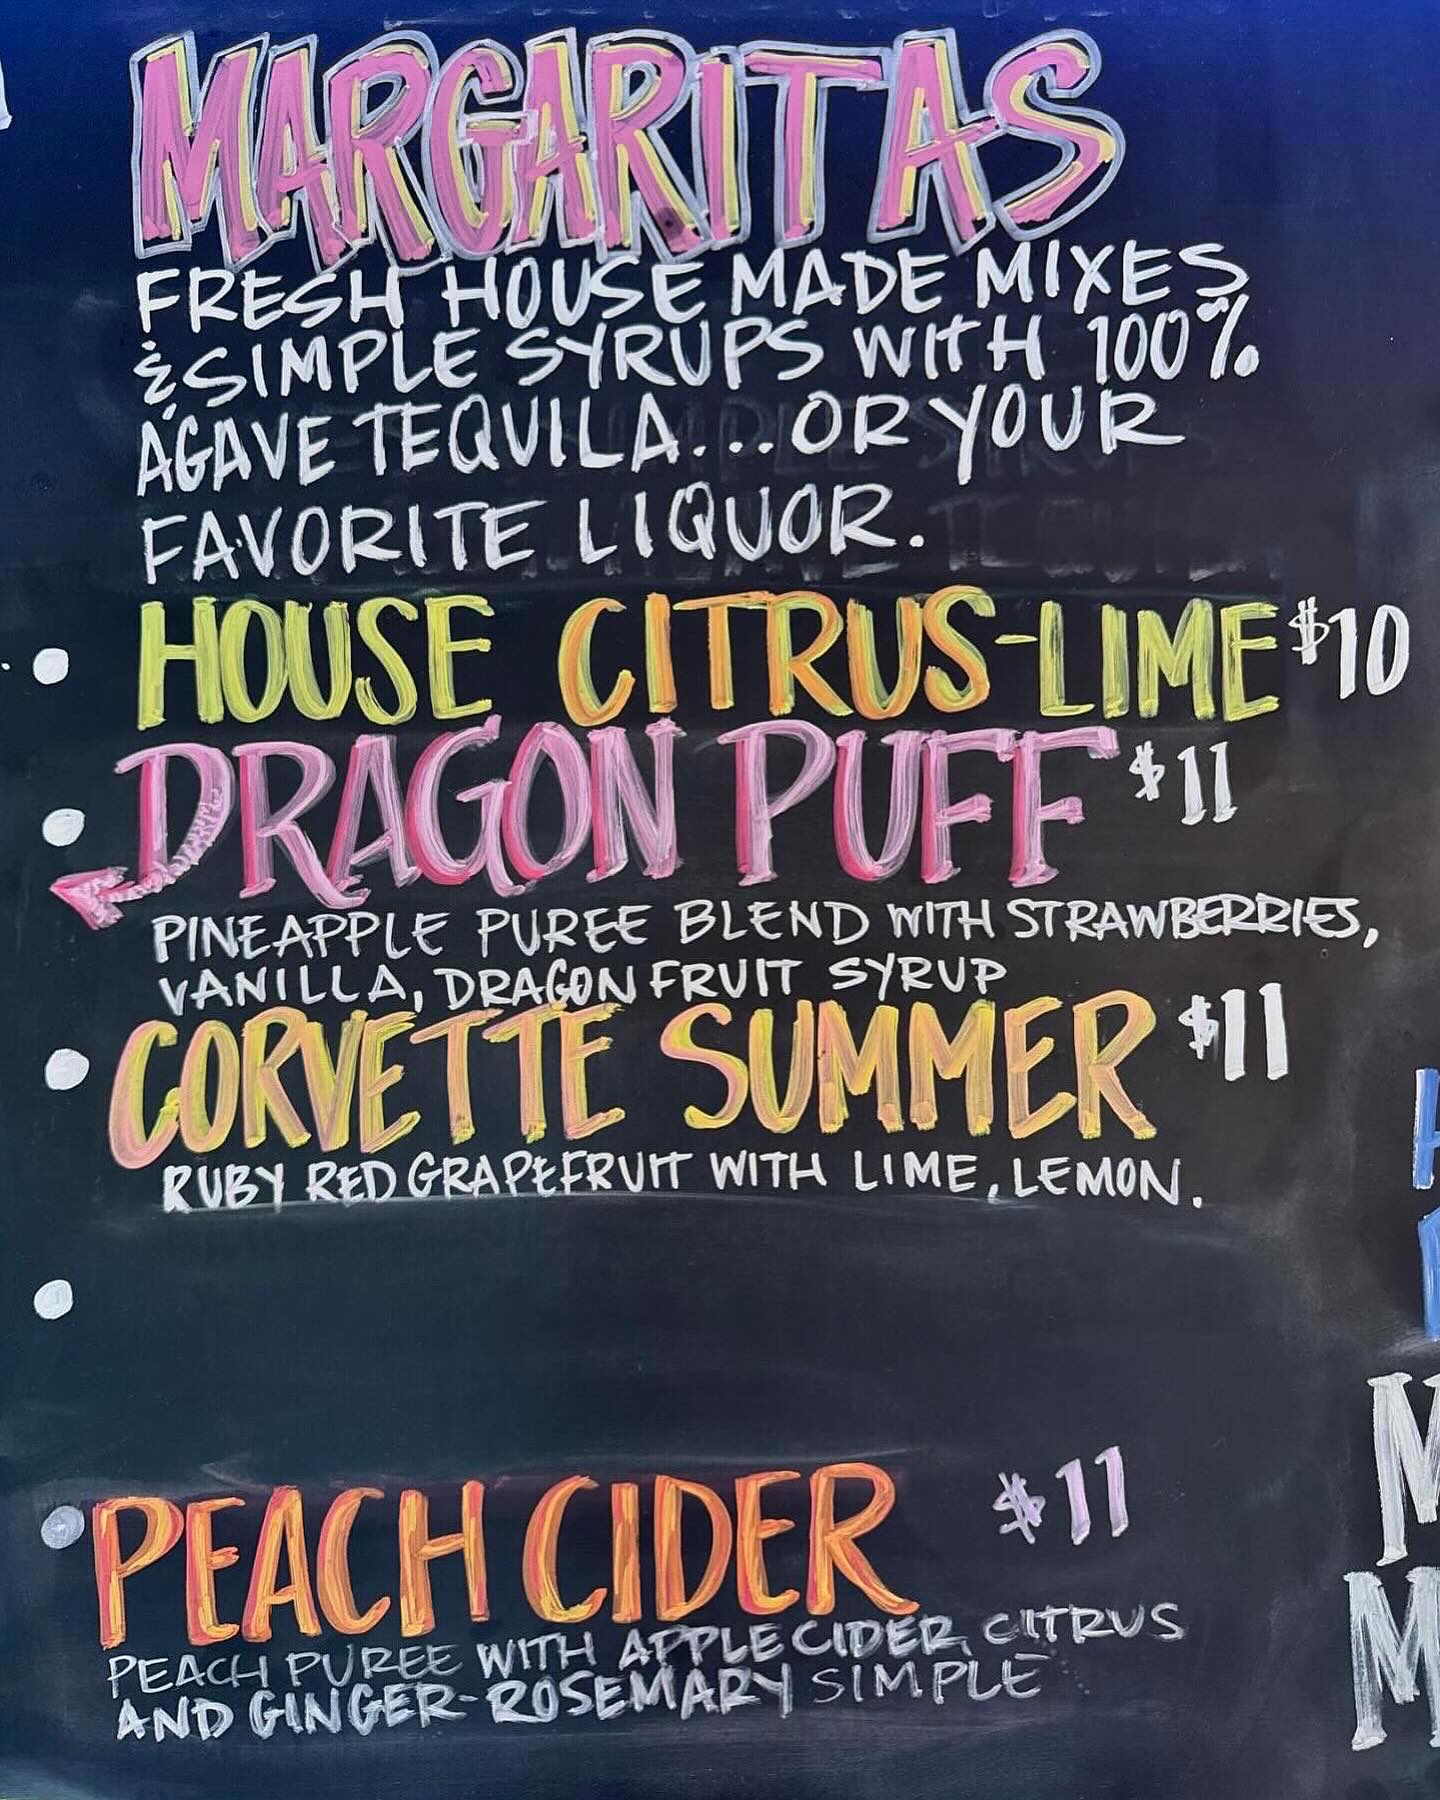 MARGARITAS
FRESH HOUSE MADE MIXES
& SIMPLE SYRUPS WITH 100%
AGAVE TEQUILA...OR YOUR
FAVORITE LIQUOR.
HOUSE CITRUS-LIME $10
DRAGON PUFF $11
PINEAPPLE PUREE BLEND WITH STRAWBERRIES,
VANILLA, DRAGON FRUIT SYRUP
CORVETTE SUMMER $11
RUBY RED GRAPEFRUIT WITH LIME, LEMON.
PEACH CIDER $11
PEACH PUREE WITH APPLE CIDER, CITRUS
AND GINGER-ROSEMARY SIMPLE